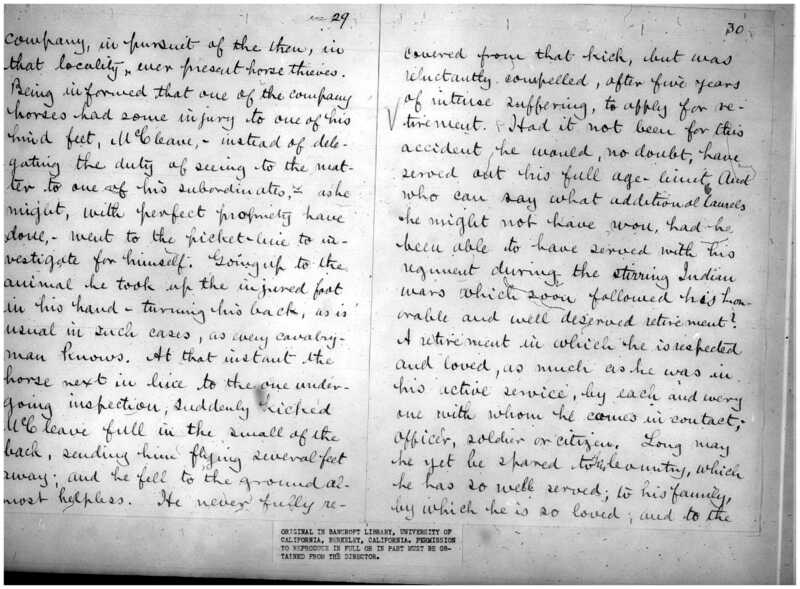 29
company, in pursuit of the then, in
that locality, ever present horse thieves.
Being informed that one of the company
horses had some injury to one of his
hind feet, McCleave,- instead of dele-
gating the duty of seeing to the mat-
ter to one of his subordinates,- as he
might, with perfect propriety have
done,- went to the picket-line to in-
vestigate for himself. Going up to the
animal he took up the injured foot
in his hand - turning his back, as is
usual in such cases, as every cavalry-
man knows. At that instant the
horse next in line to the one under-
going inspection, suddenly kicked
McCleave full in the small of the
back, sending him flying several feet
away; and he fell to the ground al-
most helpless. He never fully re-
30
covered from that kick, but was
reluctantly compelled, after five years
of intense suffering, to apply for re-
tirement. Had it not been for this
accident he would, no doubt, have
served out his full age-limit And
who can say what additional laurels
he might not have won, had he
been able to have served with his
regiment during the stirring Indian
wars which soon followed his hon-
orable and well deserved retirement?
A retirement in which he is respected
and loved, as much as he was in
his active service, by each and every
one with whom he comes in contact;
officer, soldier or citizen. Long may
he yet be spared to his country, which
he has so well served; to his family,
by which he is so loved; and to the
ORIGINAL IN BANCROFT LIBRARY, UNIVERSITY OF
CALIFORNIA, BERKELEY, CALIFORNIA. PERMISSION
TO REPRODUCE IN FULL OR IN PART MUST BE OB-
TAINED FROM THE DIRECTOR.